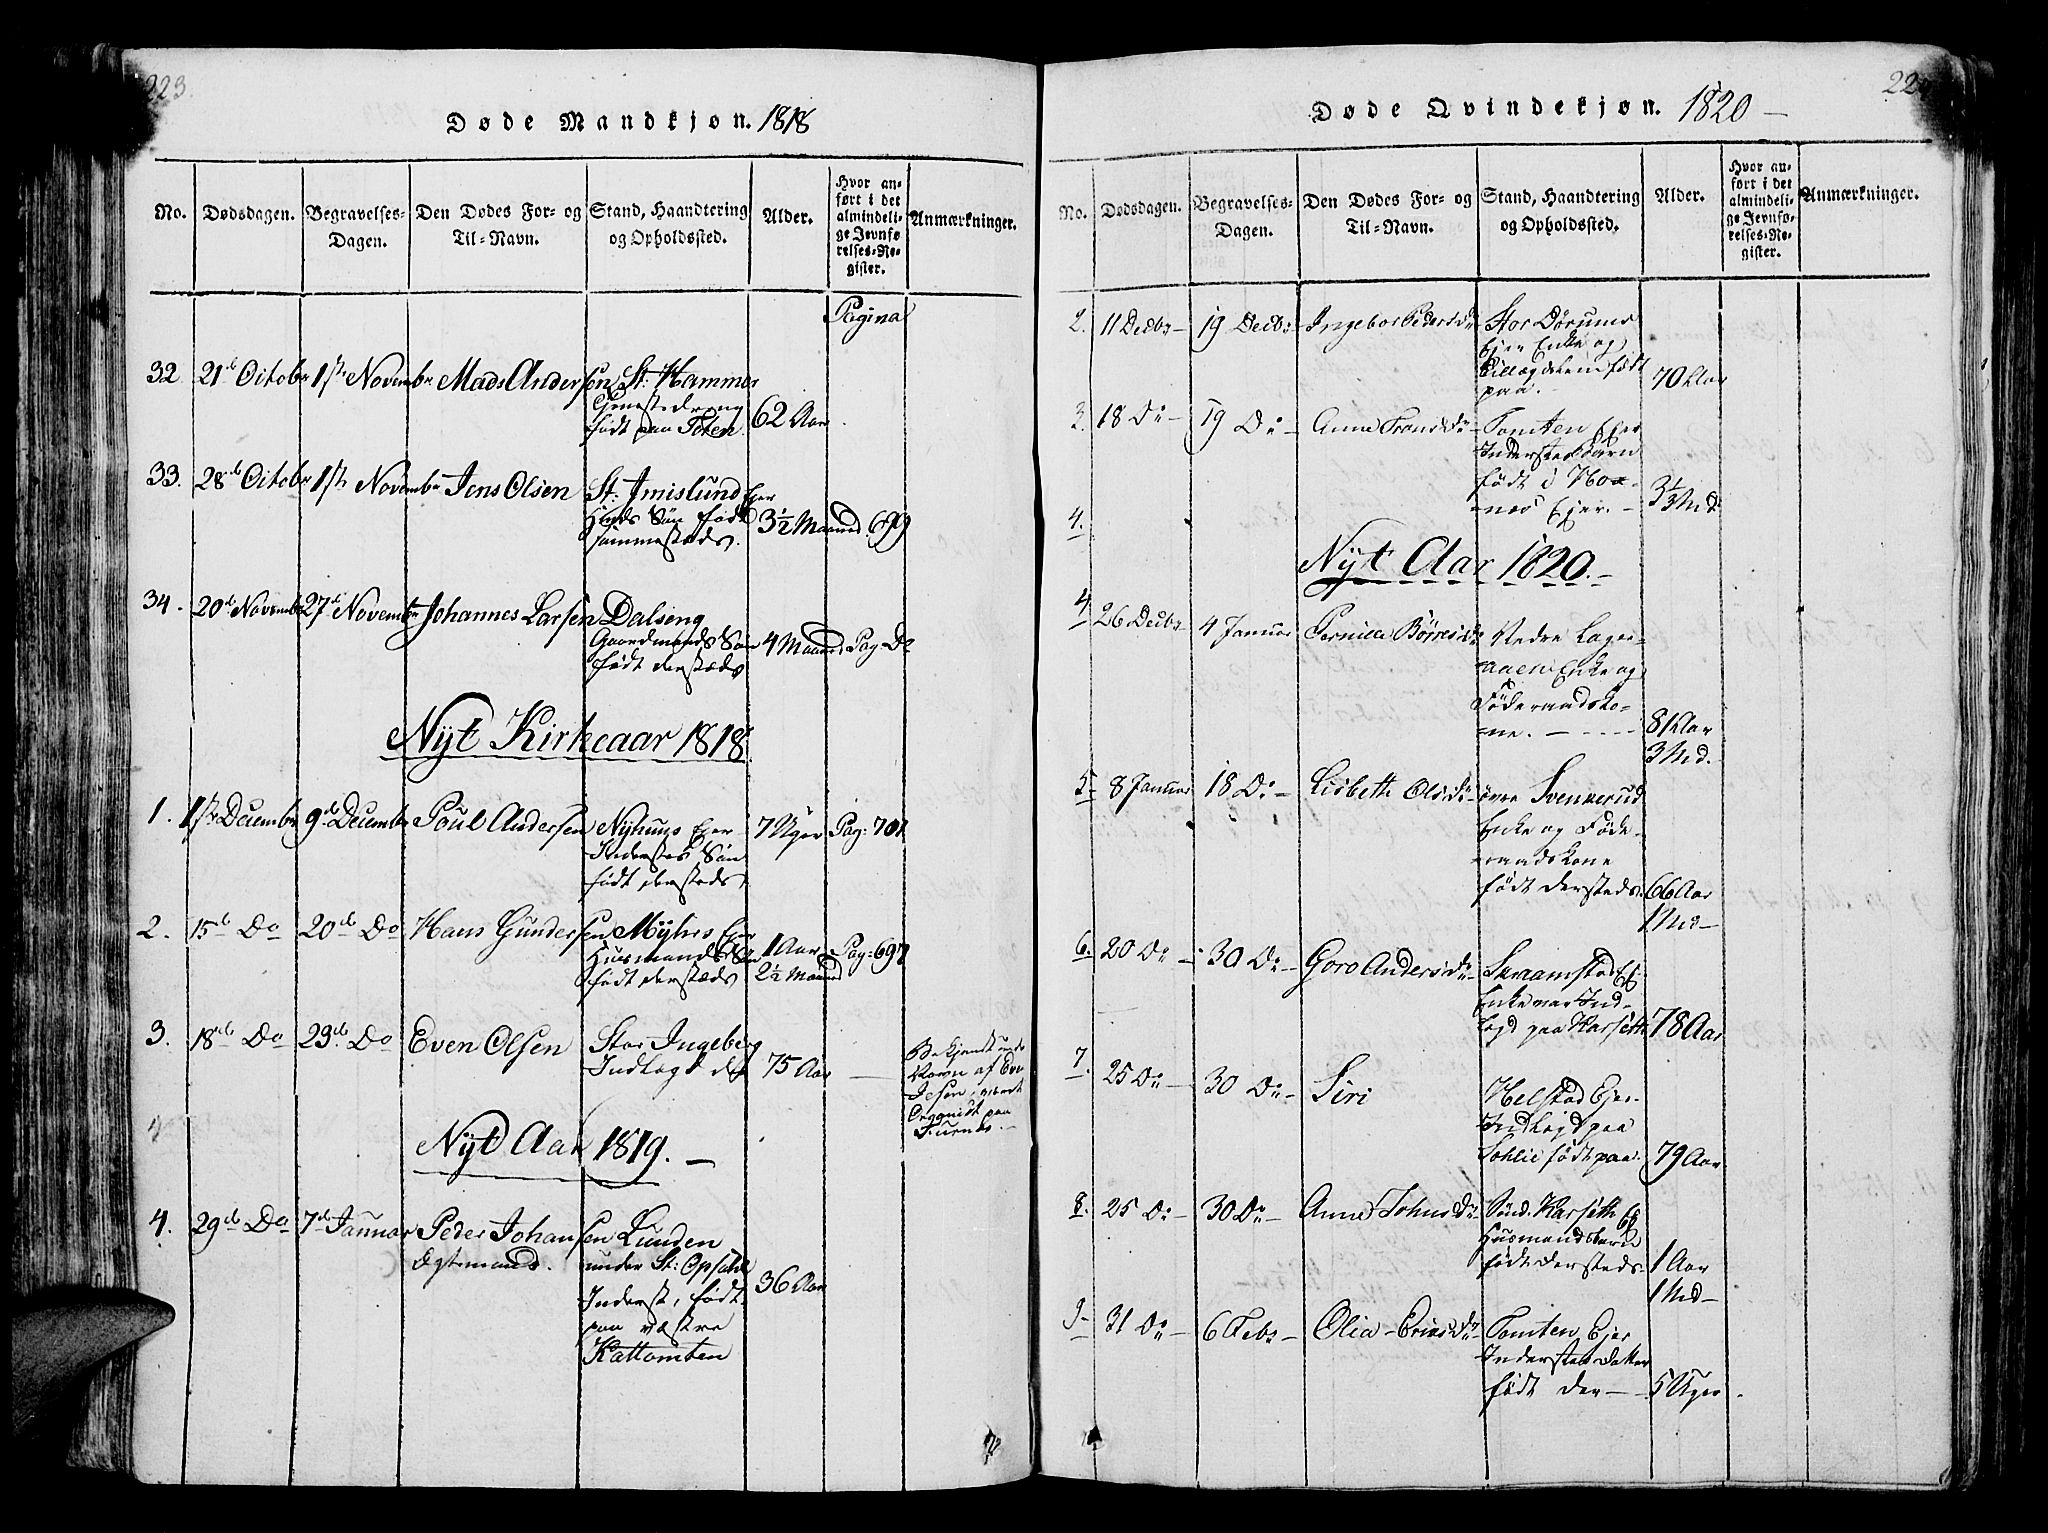 223.
Døde Mandkjøn. 1818
No.
Dødsdagen.
Begravelses-
Dagen.
Den Dødes For- og
Til-Navn.
Stand, Haandtering
og Opholdssted.
Alder.
Hvor an-
ført i det
almindeli-
ge Jevnfø-
relses-Re-
gister.
Anmærkninger.
Pagina
32 21de Octobr 1ste Novembr Mads Andersen St: Hammer
født paa Toten. 62 Aar
33. 28de Octobr 1ste Novembr Jens Olsen St: Imislund Ejer
Søn født
sammesteds. 3½ Maaned. 699
34. 20de Novembr 27de Novembr Johannes Larsen Dalseng
Gaardmands Søn
født dersteds 4 Maaned Pag. Do
Nyt Kirkeaar 1818.
1. 1ste Decembr 9de Decembr Poul Andersen Nyhuus Ejer
Inderstes Søn
født dersteds. 7 Uger Pag: 701
2. 15de Do 20de Do Hans Gundersen Myhrs Ejer
Huusmands Søn
født dersteds 1 Aar
2½ Maaned Pag: 697
3. 18de Do 29de Do Even Olsen Stor Ingeberg
Indlagt 75 Aar
Bekjendt under
Navn af Even
paa
Furnes.
Nyt Aar 1819. —
4. 29de Do 7de Januar Peder Johansen Lunden
Egtemand.
under St: Opsahl
Inderst, født
paa vestre
Kattomten
36 Aar
Døde Qvindekjøn. 1820 —
No.
Dødsdagen.
Begravelses-
Dagen.
Den Dødes For- og
Til-Navn.
Stand, Haandtering
og Opholdssted.
Alder.
Hvor an-
ført i det
almindeli-
ge Jevnfø-
relses-Re-
gister.
Anmærkninger.
2. 11 Decbr — 19 Decbr Ingebor Pedersdr Stor Dørums
Ejer Enke og
født
paa. — 70 Aar
3. 18 Do — 19 Do — Anne Fransdr — Tomten Ejer
Inderstes Barn
født i Hox-
næs Ejer. — 3½ Md.
4.
Nyt Aar 1820. —
4 26 Decbr — 4 Januar Pernille Børresdr Nedre Lager-
aaen Enke og
Føderaadsko-
ne. — 81 Aar
3 Md.
5 8 Januar 18 Do — Lisbeth Olsdr — øvre Svennerud
Enke og Føde-
raadskone
født dersteds. 66 Aar
1 Md —
6. 20 Do — 30 Do — Goro Andersdr — Skraamstad Ej
Enke var Ind-
lagd paa Karseth 78 Aar
7. 25 Do — 30 Do — Siri Helstad Ejer
Indlagd paa
Sohlie født paa 79 Aar
8. 25 Do — 30 Do — Anne Johnsdr Sønd. Karseth Ej
Huusmandsbarn
født dersteds 1 Aar
1 Md —
9 31 Do — 6 Febr — Olia Ericsdr — Tomten Ejer
Inderstes Datter
født der — 5 Uger.